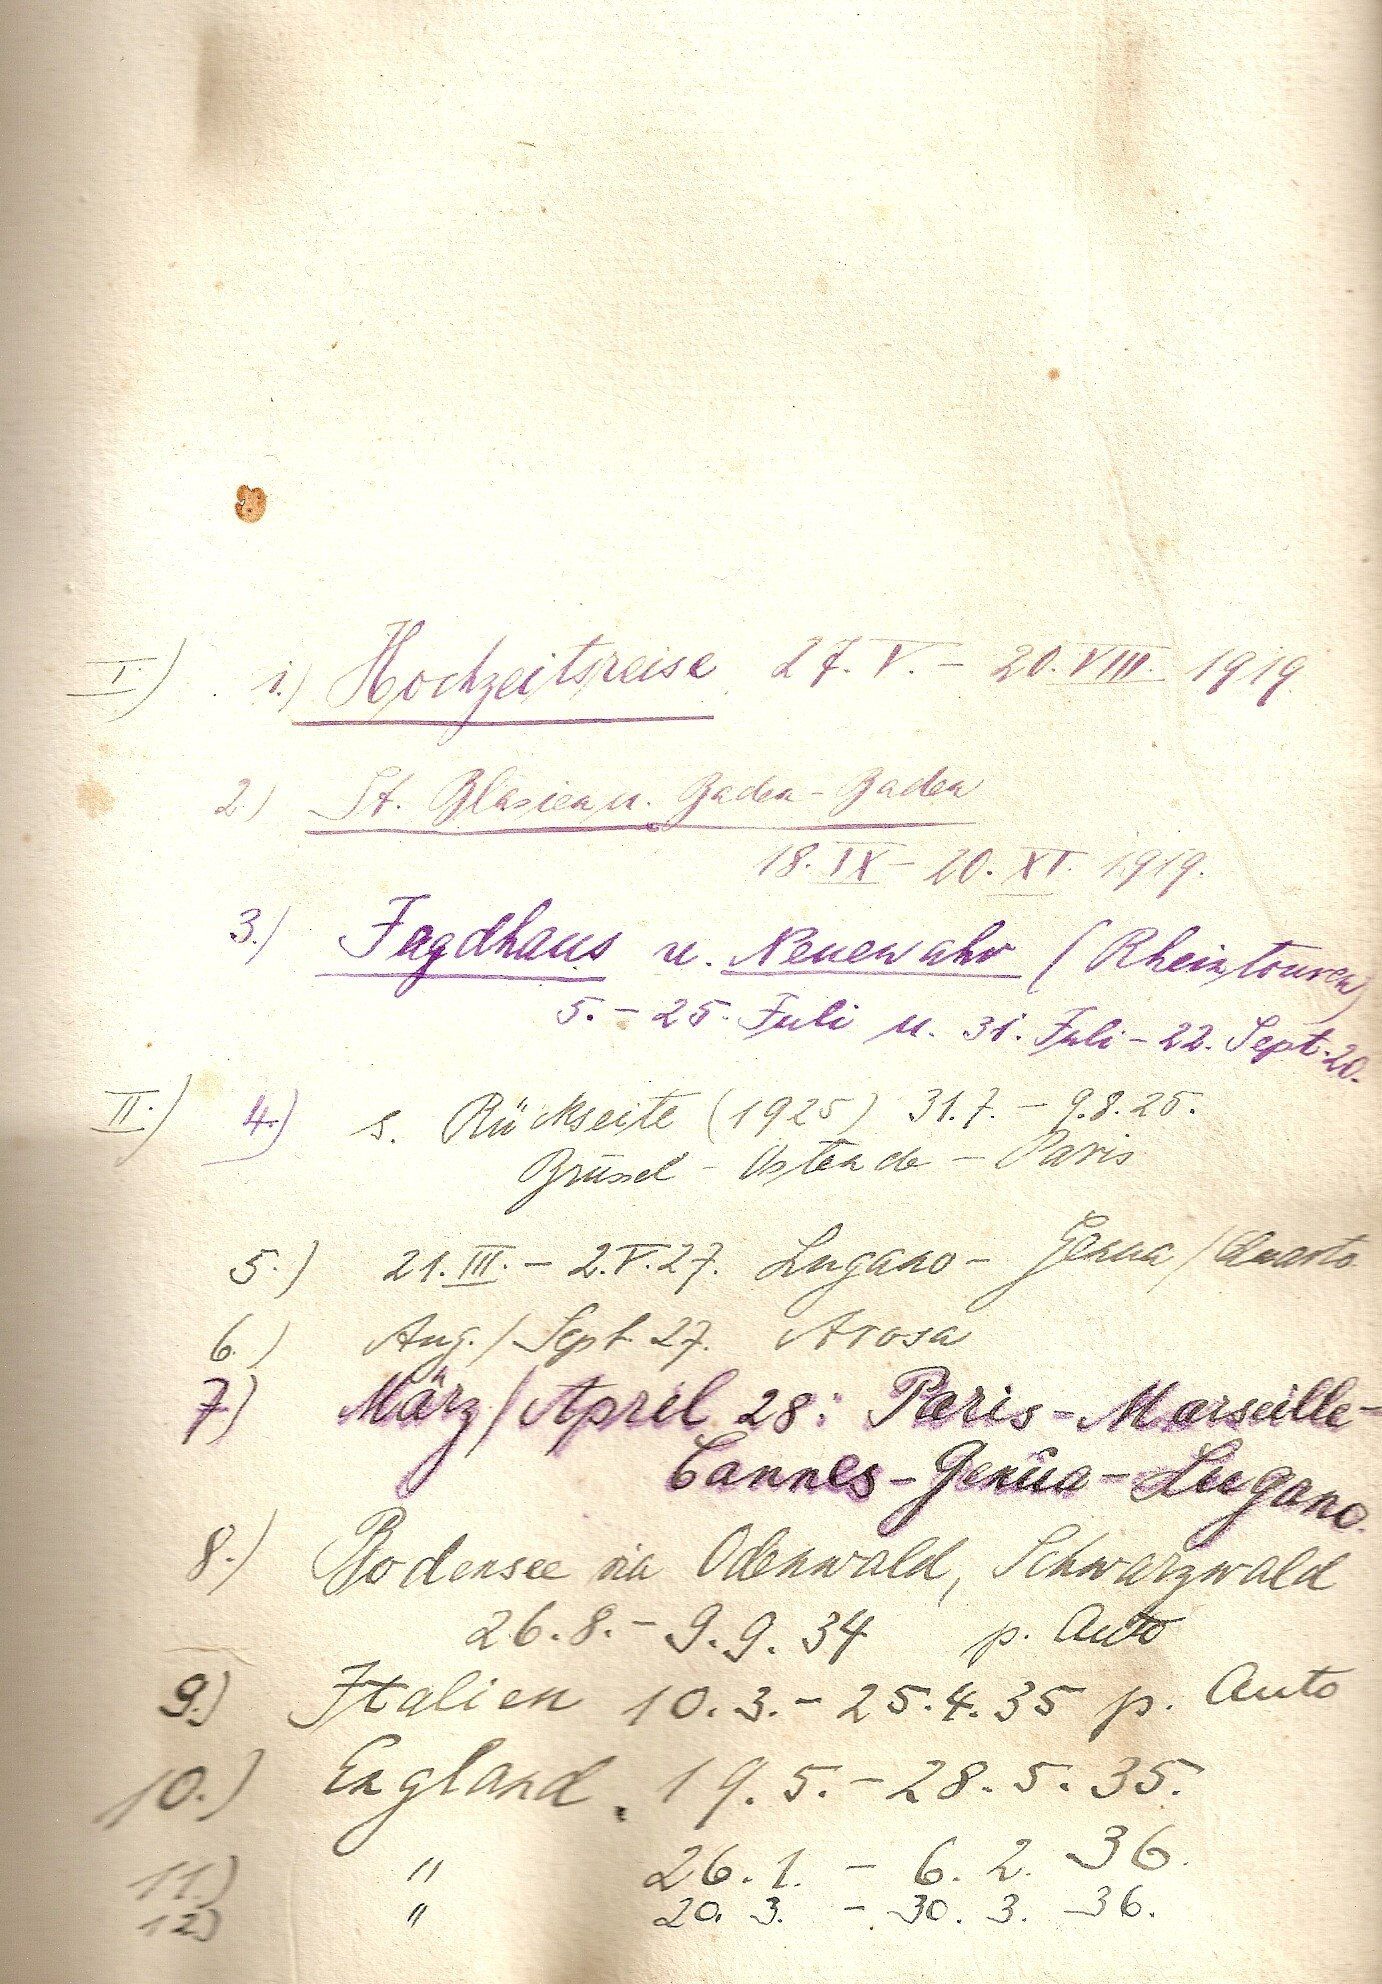 I.) 1.) Hochzeitsreise 27. V. – 20. VIII. 1919.
2) St. Blasien u. Baden-Baden
18. IX – 20. XI. 1919.
3.) Jagdhaus u. Neuenahr (Rheintouren)
5. – 25. Juli u. 31. Juli – 22. Sept. 20.
II.) 4.) s. Rückseite (1925) 31.7. – 9.8.25.
Brüssel – Ostende – Paris
5.) 21. III. – 2. V. 27. Lugano – Genua / Quarto
6.) Aug. / Sept. 27. Arosa
7) März / April 28: Paris – Marseille –
Cannes – Genua – Lugano.
8.) Bodensee via Odenwald, Schwarzwald
26.8. – 9.9.34 p. Auto
9.) Italien 10.3. – 25.4.35 p. Auto
10.) England. 19.5. – 28.5.35.
11.) " 26.1. – 6.2.36.
12) " 20.3. – 30.3.36.